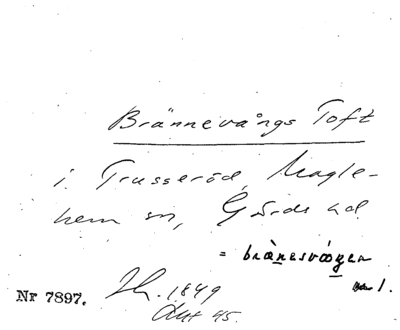 Brännevångs Toft
i Trusseröd, Magle-
hem sn, Gärds hd
= brànesvåŋen
nr 1.
Nr 7897.
1849
Akt 45.